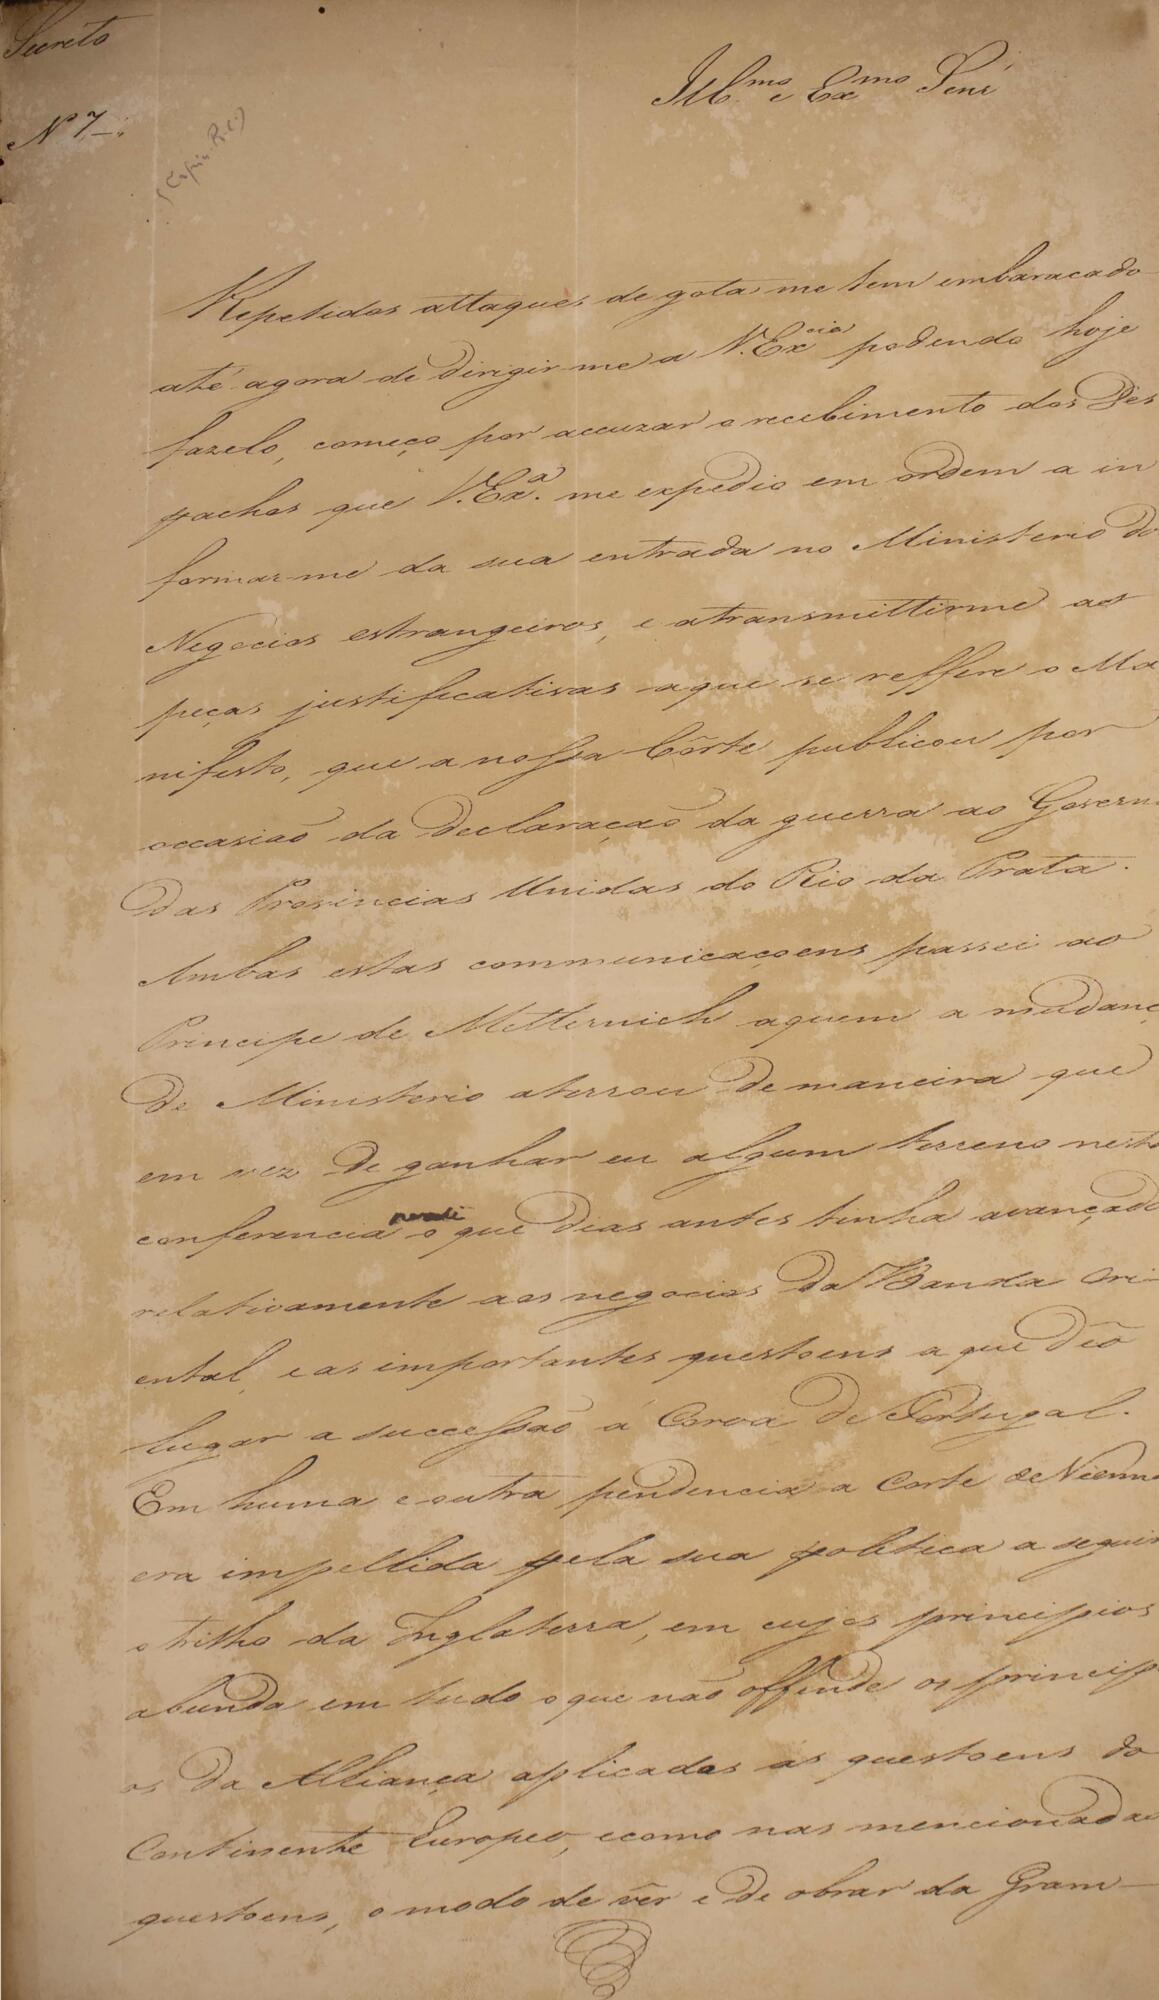 Secreto
Ill.mo e Ex.mo Senr
N 7
(Copia R.e.)
Repetidos attaques de gota me tem embaracado
até agora de dirigir me a V.Excia podendo hoje
fazelo, começo por accuzar o recebimento dos Des
pachos que V.Ex.a me expedio em ordem a in
formar me da sua entrada no Ministerio do
Negocios estrangeiros, e atransmittirme as
peças justificativas aque se reffere o Ma
nifesto, que a nossa Côrte publicou por
occasiaõ da Declaraçaõ da guerra ao Govern
das Provincias Unidas do Rio da Prata.
Ambas estas communicaçoens passei ao
Principe de Metternich aquem a mudanç
de Ministerio aterrou de maneira que
em vez de ganhar eu algum terreno nesta
conferencia perdi o que dias antes tinha avançado
relativamente aos negocios da Banda Ori-
ental, e as importantes questoens a que dêo
lugar a successaõ á Coroa de Portugal.
Em huma e outra pendencia a Corte de Vienna
era impellida pela sua politica a seguir
o trilho da Inglaterra, em cujos principios
abunda em tudo o que naõ offende os princip
os da Alliança aplicados as questoens do
Continente Europeo, ecomo nas mencionadas
questoens, o modo de vêr e de obrar da Gram-